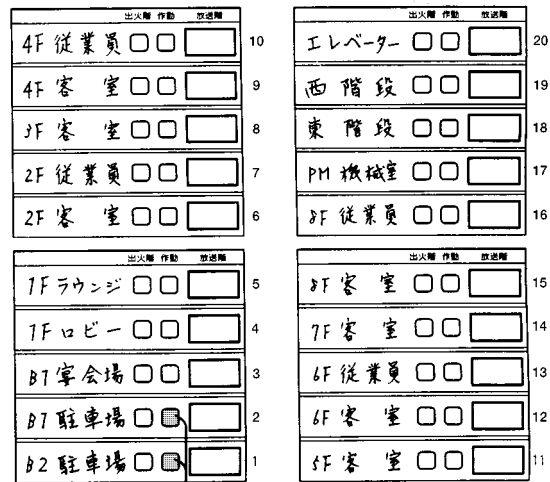 出火階 作動 放送階
4F 従業員 10
4F 客 室 9
3F 客 室 8
2F 従業員 7
2F 客 室 6
出火階 作動 放送階
1F ラウンジ 5
1F ロビー 4
B1 宴会場 3
B1 駐車場 2
B2 駐車場 1
出火階 作動 放送階
エレベーター 20
西 階 段 19
東 階 段 18
PH 機械室 17
8F 従業員 16
出火階 作動 放送階
8F 客 室 15
7F 客 室 14
6F 従業員 13
6F 客 室 12
5F 客 室 11